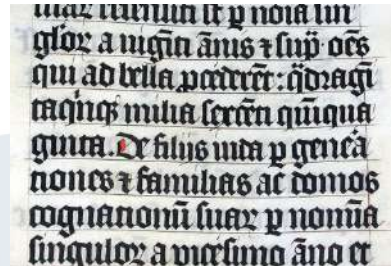 nuaꝝ nūiti sūt ꝑ noīa sin
gloꝝ a uigīti ānis ⁊ sup̄· oēs
qui ad bella ꝓcederēt: q̄dragī
taq̄nq̄ꝫ milia sexcēti quīqua
ginta. De filiis iuda ꝑ gene͛a
tiones ⁊ familias ac domos
cognationū suaꝝ ꝑ nomīa
singuloꝝ a uicesimo āno et